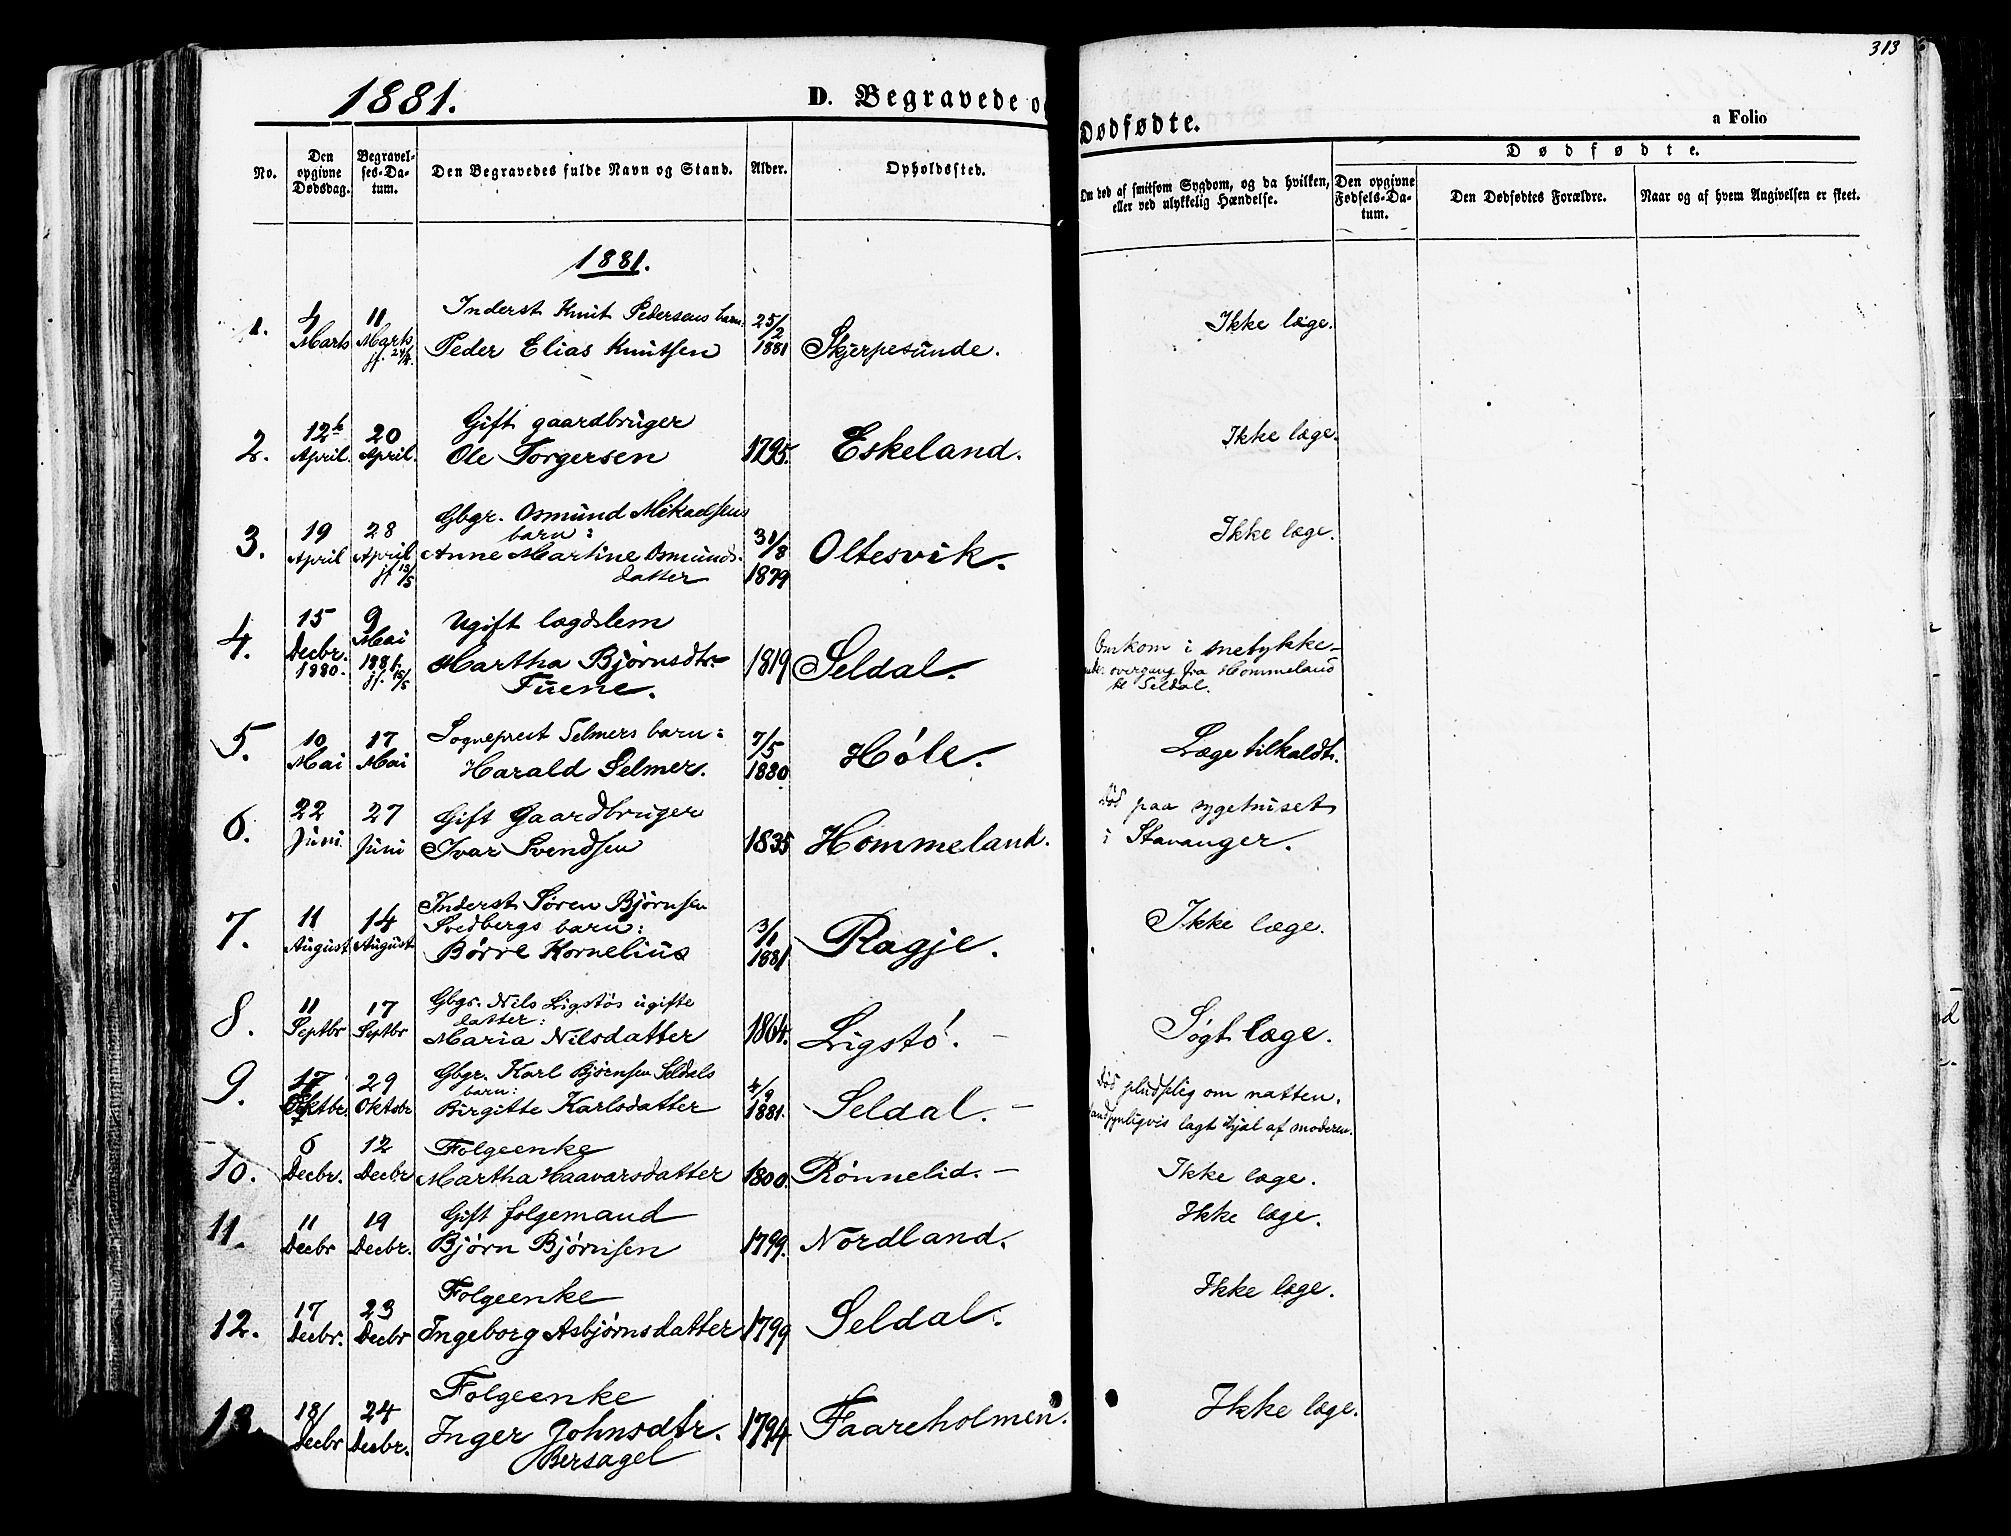 313
1881.
D. Begravede o
Dødfødte.
a Folio
No.
Den opgivne Dødsdag.
Begravel-ses-Da-tum.
Den Begravedes fulde Navn og Stand.
Alder.
Opholdssted.
Om død af smitsom Sygdom, og da hvilken, eller ved ulykkelig Hændelse.
Dødfødte.
Den opgivne Fødsels-Da-tum.
Den Dødfødtes Forældre.
Naar og af hvem Angivelsen er skeet.
1881.
1. 4 Marts 11 Marts jf. 24/4. Inderst Knut Pedersens barn: 25/2 1881 Skjerpesunde. Ikke læge.
Peder Elias Knutsen
2. 12te April. 20 April. Gift gaardbruger 1795. Eskeland. Ikke læge.
Ole Torgersen
3. 19 April 28 April jf 15/5 Gbgr. Osmund Mikaelsens 31/8 1879 Oltesvik. Ikke læge.
barn:
Anne Martine Osmunds-
datter
4. 15 Decbr. 1880. 9 Mai 1881. jf. 15/5 Ugift lægdslem 1819 Seldal. Omkom i snetykke
Martha Bjørnsdtr overgang fra Hommeland
Tuene. til Seldal.
5. 10 Mai 17 Mai Sogneprest Selmers barn: 7/5 1880 Høle. Læge tilkaldt.
Harald Selmer.
6. 22 Juni 27 Juni Gift Gaardbruger 1835 Hommeland. Død paa sygehuset
Ivar Svendsen i Stavanger.
7. 11 August 14 August Inderst Søren Bjørnsen 3/1 1881 Ragje. Ikke læge.
Svedbergs barn:
Børre Kornelius
8. 11 Septbr 17 Septbr Gbgr. Nils Ligstøs ugifte 1864. Ligstø. Søgt læge.
datter:
Maria Nilsdatter
9. 17 Oktbr. 29 Oktobr Gbgr. Karl Bjørnsen Seldals 4/9 1881. Seldal. Død pludselig om natten.
barn:
Birgitte Karlsdatter sandsynligvis lagt ihjal af moderen.
10. 6 Decbr. 12 Decbr Folgeenke 1800. Rønnelid. Ikke læge.
Martha Haavarsdatter
11. 11 Decbr 19 Decbr. Gift folgemand 1799. Nordland. Ikke læge.
Bjørn Bjørnsen
12. 17 Decbr. 23 Decbr Folgeenke 1799 Seldal. Ikke læge.
Ingeborg Asbjørnsdatter
13. 18 Decbr 24 Decbr. Folgeenke 1794 Faareholmen. Ikke læge.
Inger Johnsdtr.
Bersagel